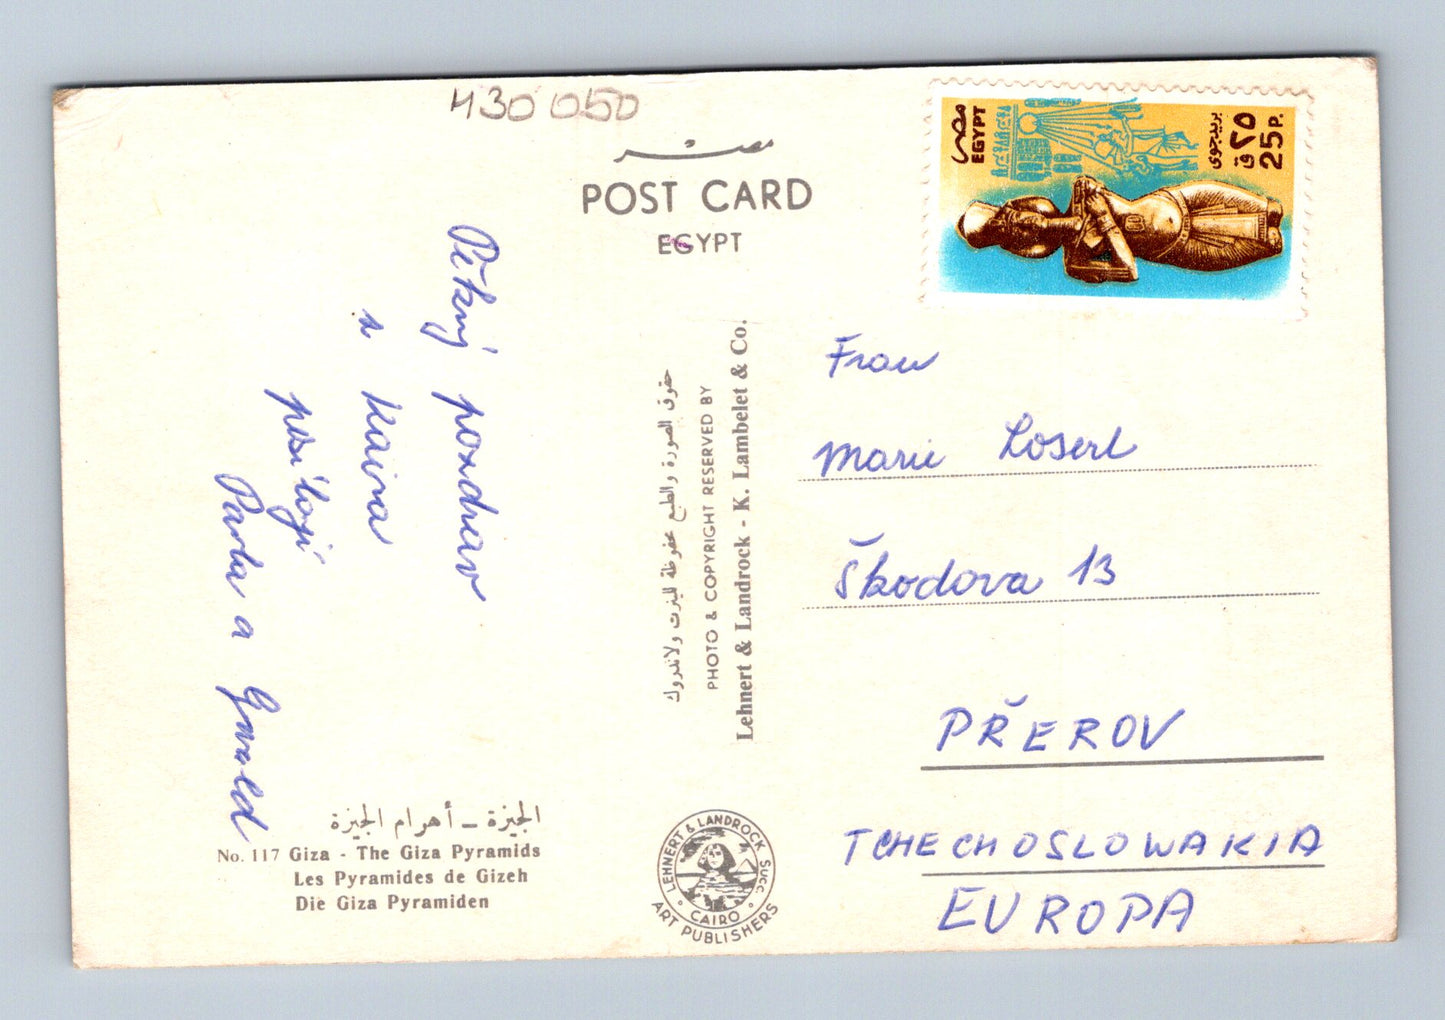 430 050
مصر
POST CARD
EGYPT
مصر
EGYPT
بريد جوى
٢٥ ق
25 P.
Pěkný pozdrav
z Kaira
posílají
Pavla a Ewald
حقوق الصورة والطبع محفوظة للينرت ولاندروك
PHOTO & COPYRIGHT RESERVED BY
Lehnert & Landrock - K. Lambelet & Co.
Frau
Marie Loserl
Škodova 13
PŘEROV
TCHECHOSLOWAKIA
EUROPA
الجيزة – أهرام الجيزة
No. 117 Giza - The Giza Pyramids
Les Pyramides de Gizeh
Die Giza Pyramiden
LEHNERT & LANDROCK SUCC.
CAIRO
ART PUBLISHERS